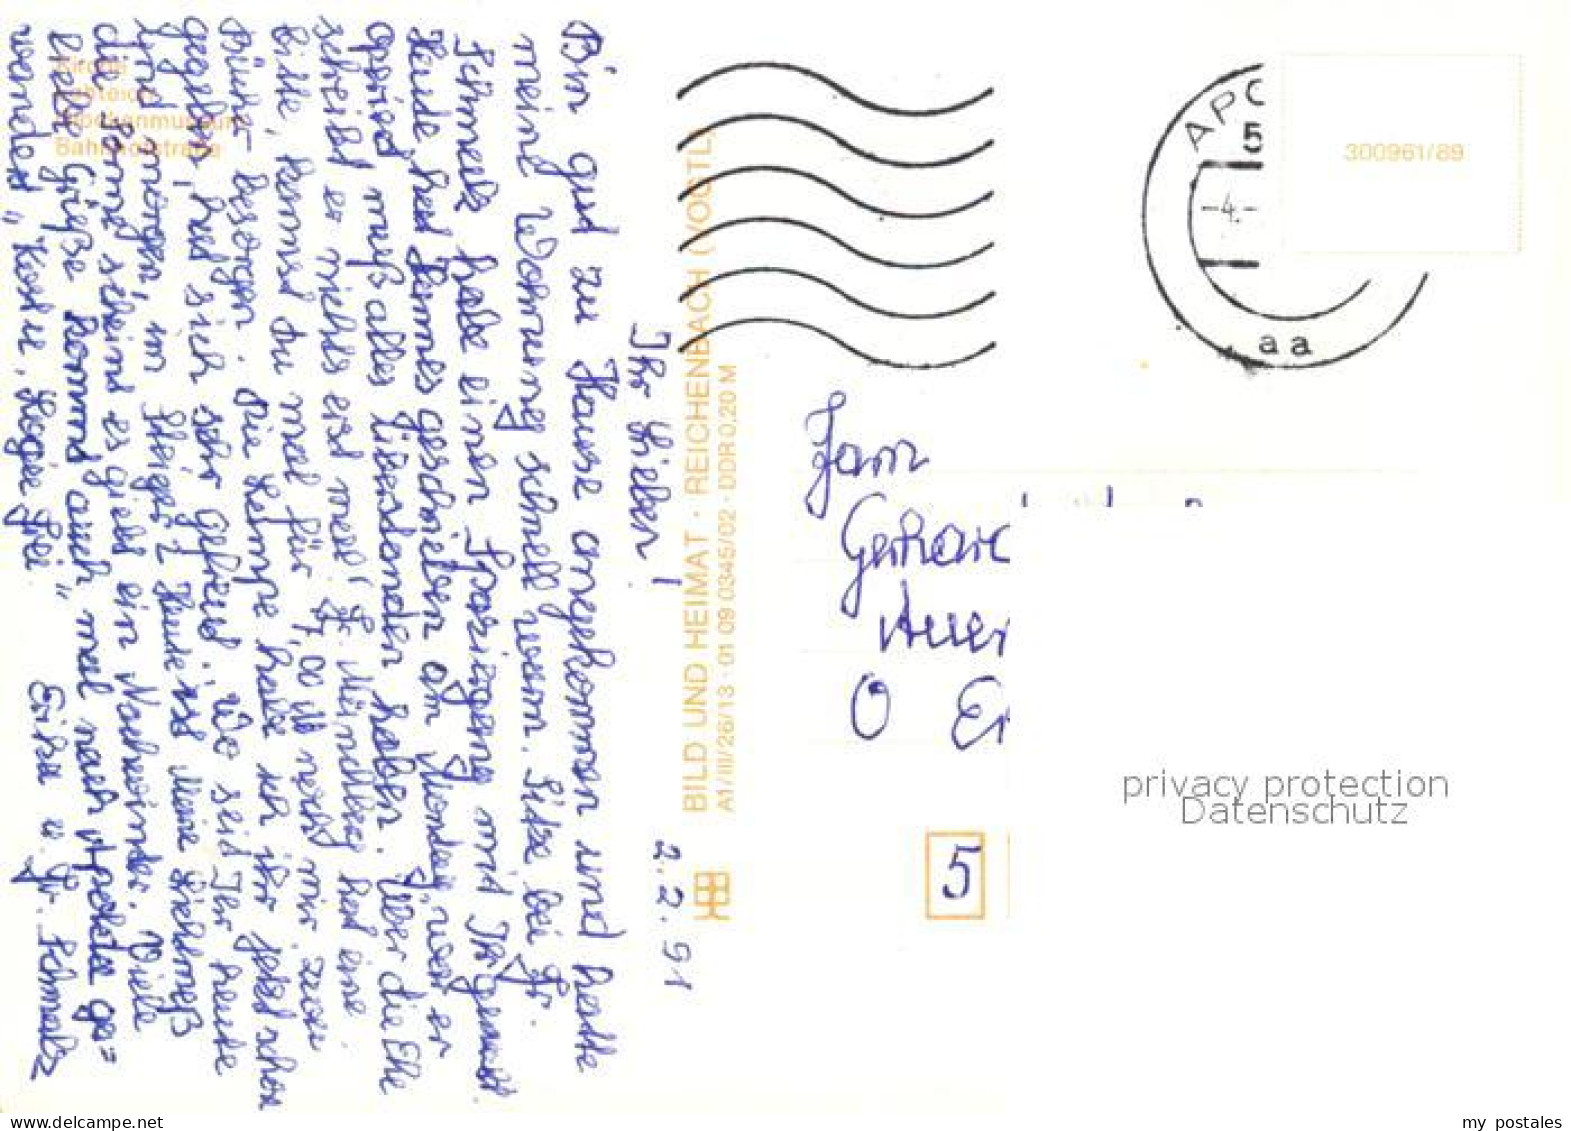 Kirche
Lohteich
Glockenmuseum
Bahnhofstraße
2.2.91
Ihr Lieben!
Bin gut zu Hause angekommen und hatte
meine Wohnung schnell warm. Sitze bei Fr.
Schmalz habe einen Spaziergang mit Ihr gemacht.
Heute hat Hannes geschrieben am Montag war er
operiert, muß alles überstanden haben. Über die Elle
schreibt er nichts erst mal! Fr. Münchberg hat eine
bitte, kannst Du mal für M nach mir zwei
Bücher besorgen. Die Lampe habe ich ihr jetzt schon
gegeben, hat sich sehr gefreut. Wo seid Ihr heute
und morgen, im Steiger? Heute ist Maria Lichtmeß
die Sonne scheint es giebt ein Nachwinter. Viele
liebe Grüße kommt auch mal nach Apolda ge=
wandert, Kost u. Logie frei"
Erika u. Fr. Schmalz
BILD UND HEIMAT · REICHENBACH (VOGTL)
A1/III/26/13 · 01 09 0345/02 · DDR 0,20 M
APO
5
-4.-
aa
300961/89
Fam
Gerhard
Auer
O Er
5
privacy protection
Datenschutz
www.delcampe.net
my_postales